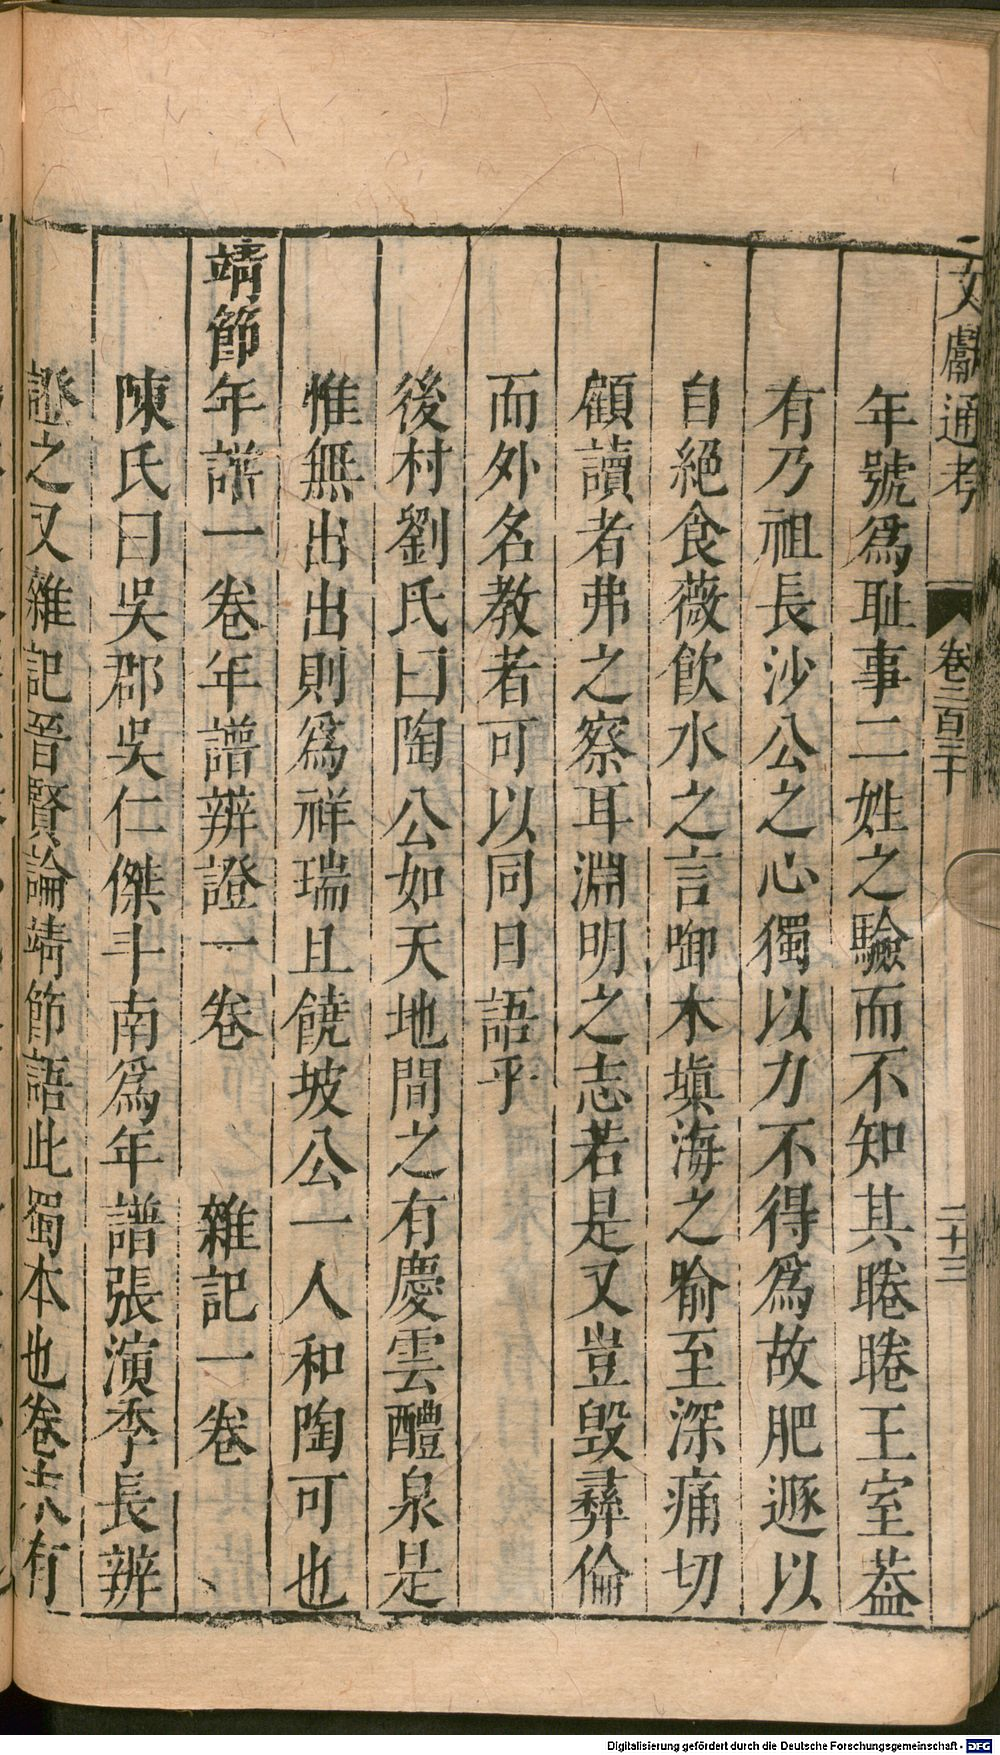 文獻通考 卷二百三十 二十三
年號爲耻事二姓之驗而不知其睠睠王室葢
有乃祖長沙公之心獨以力不得爲故肥遯以
自絕食薇飲水之言啣木塡海之喻至深痛切
顧讀者弗之察耳淵明之志若是又豈毀彞倫
而外名教者可以同日語乎
後村劉氏曰陶公如天地間之有慶雲醴泉是
惟無出出則爲祥瑞且饒坡公一人和陶可也
靖節年譜一卷年譜辨證一卷 雜記一卷
陳氏曰吳郡吳仁傑斗南爲年譜張演季長辨
證之又雜記晉賢論靖節語此蜀本也卷末有
Digitalisierung gefördert durch die Deutsche Forschungsgemeinschaft - DFG